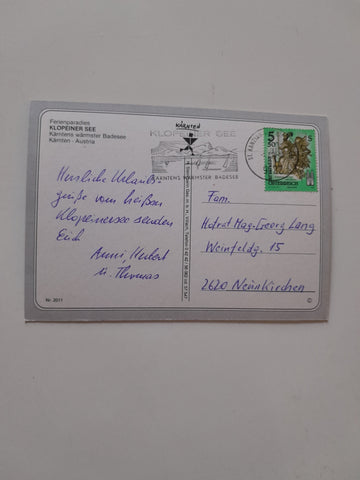 Ferienparadies
KLOPEINER SEE
Kärntens wärmster Badesee
Kärnten - Austria
KÄRNTEN
KLOPEINER SEE
KÄRNTENS WÄRMSTER BADESEE
ST. KANZIAN
5 S
50
ÖSTERREICH
Herzliche Urlaubs-
grüße vom heißen
Klopeinersee senden
Euch
Anni, Hubert
u. Thomas
Fam.
Hofrat Mag. Georg Lang
Weinfeldg. 15
2620 Neunkirchen
Nr. 2011
©